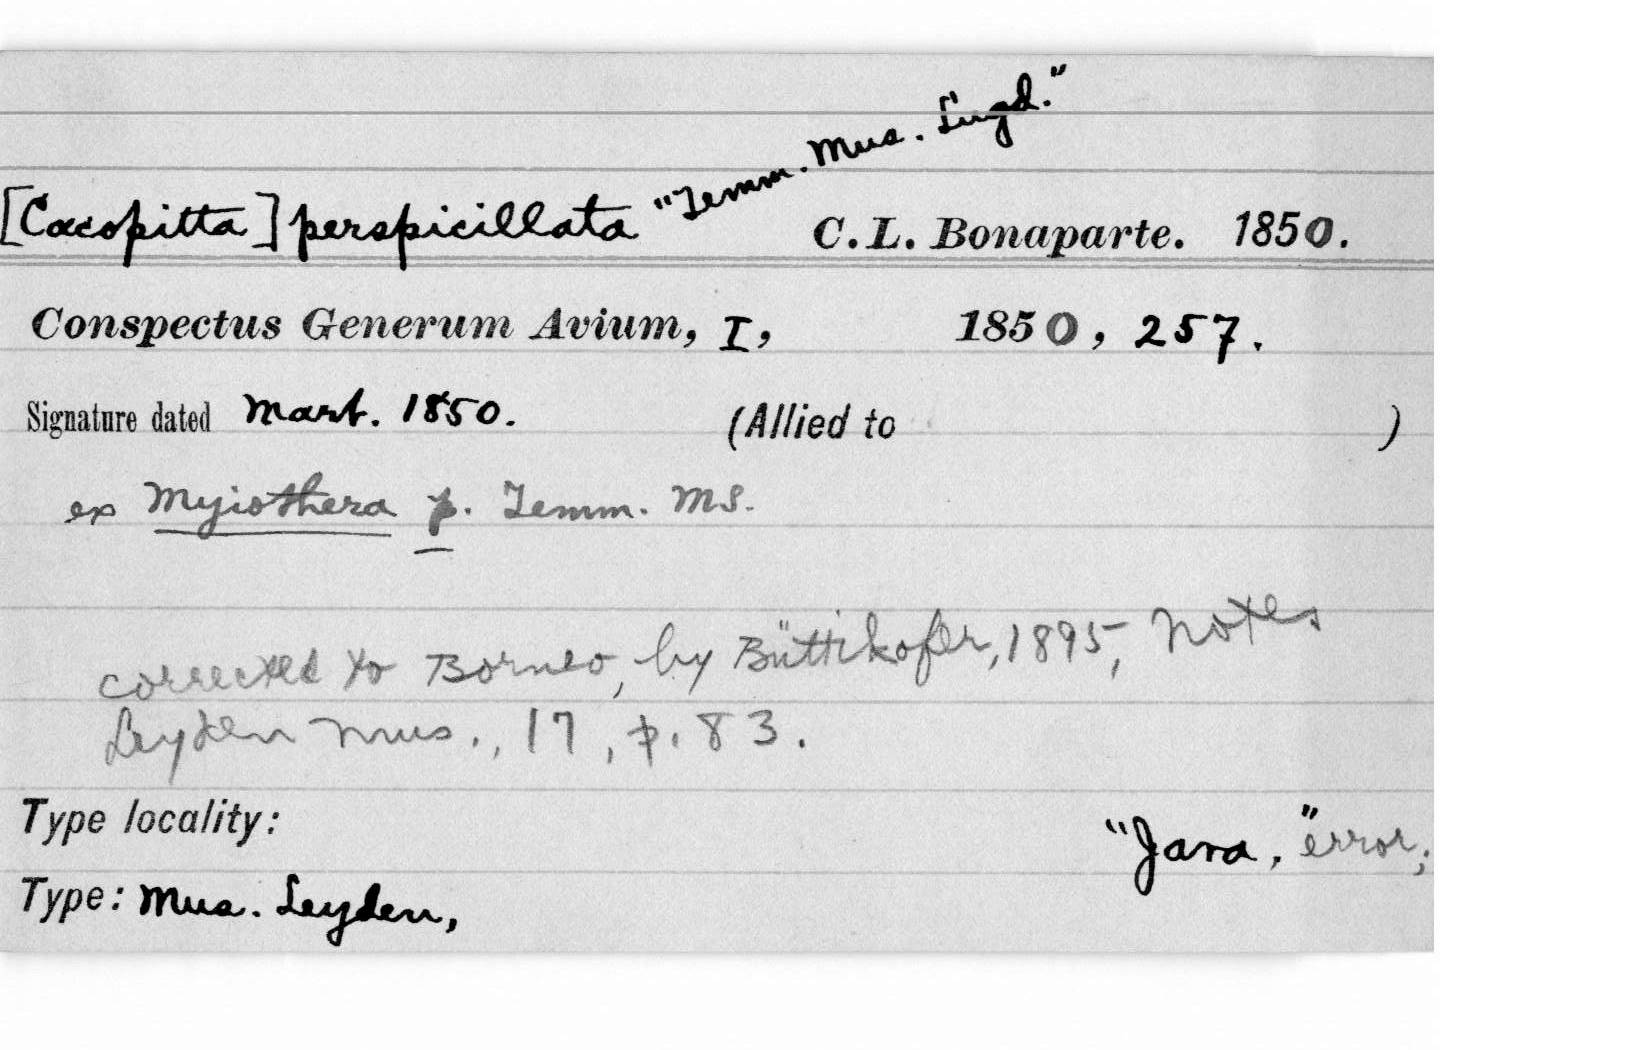 "Temm. Mus. Lugd."
[Cacopitta] perspicillata C.L. Bonaparte. 1850.
Conspectus Generum Avium, I, 1850, 257.
Signature dated Mart. 1850. (Allied to )
ex Myiothera p. Temm. MS.
corrected to Borneo, by Büttikofer, 1895, Notes
Leyden Mus., 17, p. 83.
Type locality: "Java," error;
Type: Mus. Leyden,